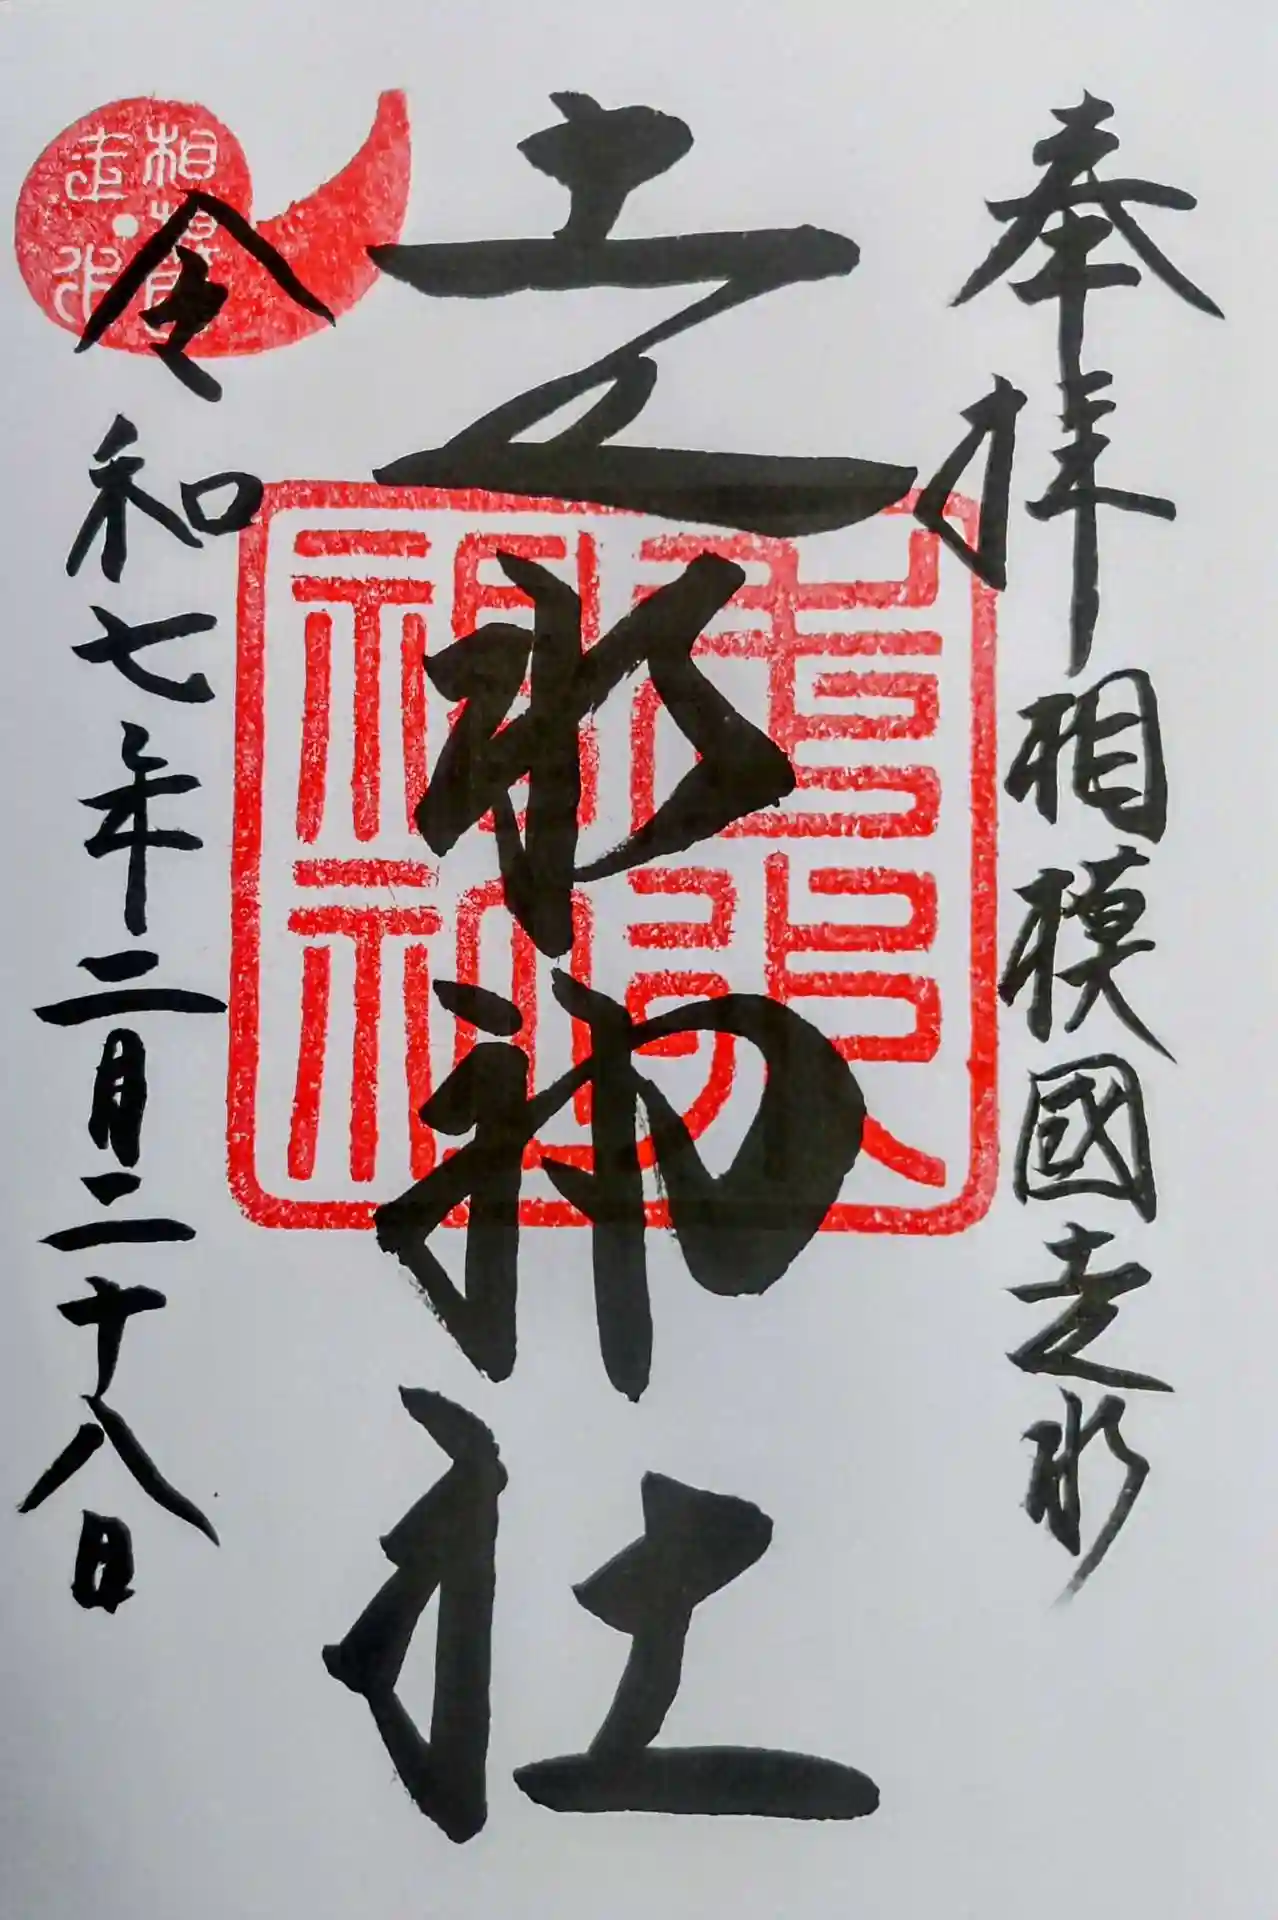 奉拝 相模國走水
走水神社
令和七年二月二十八日
相模国
走水